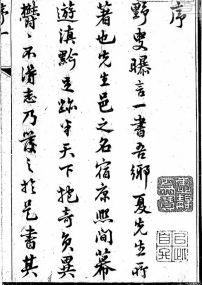 序
野叟曝言一書吾鄉夏先生所
著也先生邑之名宿康熙間幕
遊滇黔足跡半天下抱奇負異
鬱鬱不得志乃發之於是書其
序一